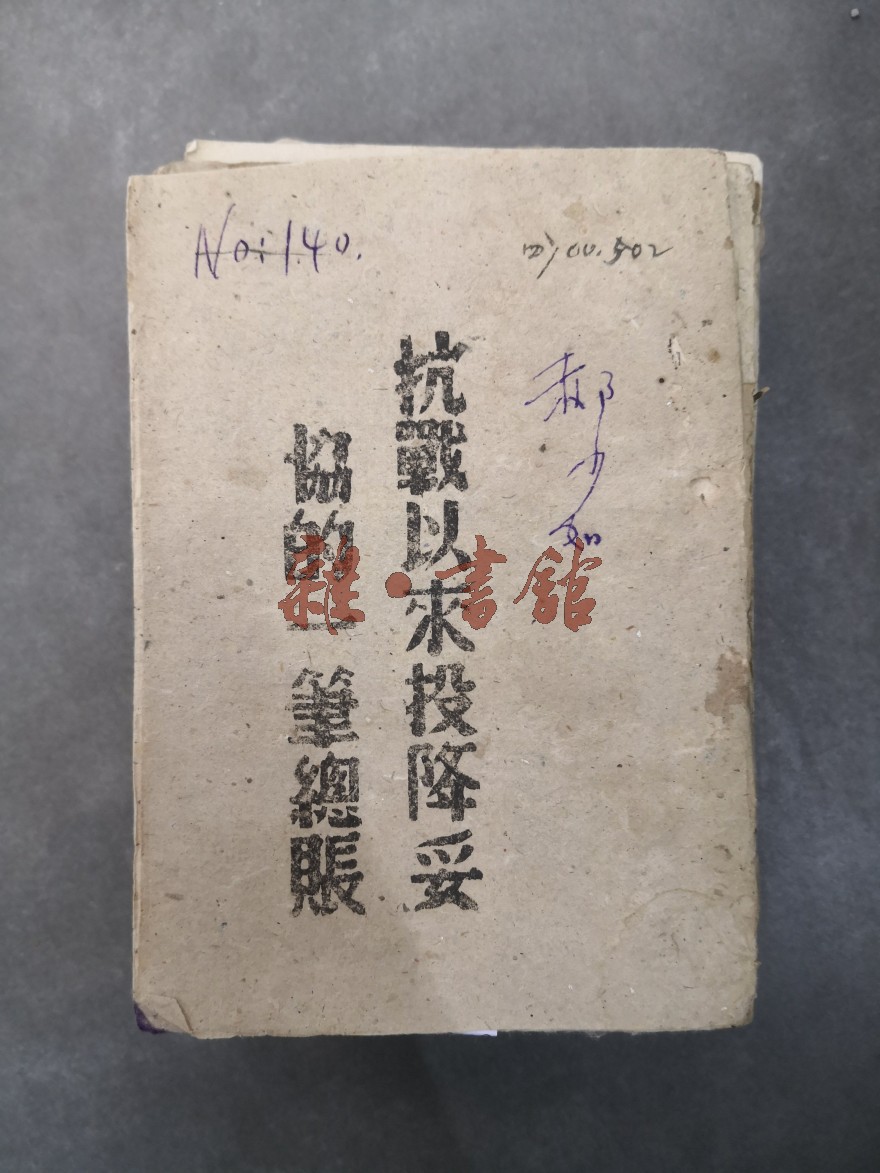 No:140.
郝少如
抗戰以來投降妥
協的一筆總賬
雜·書館